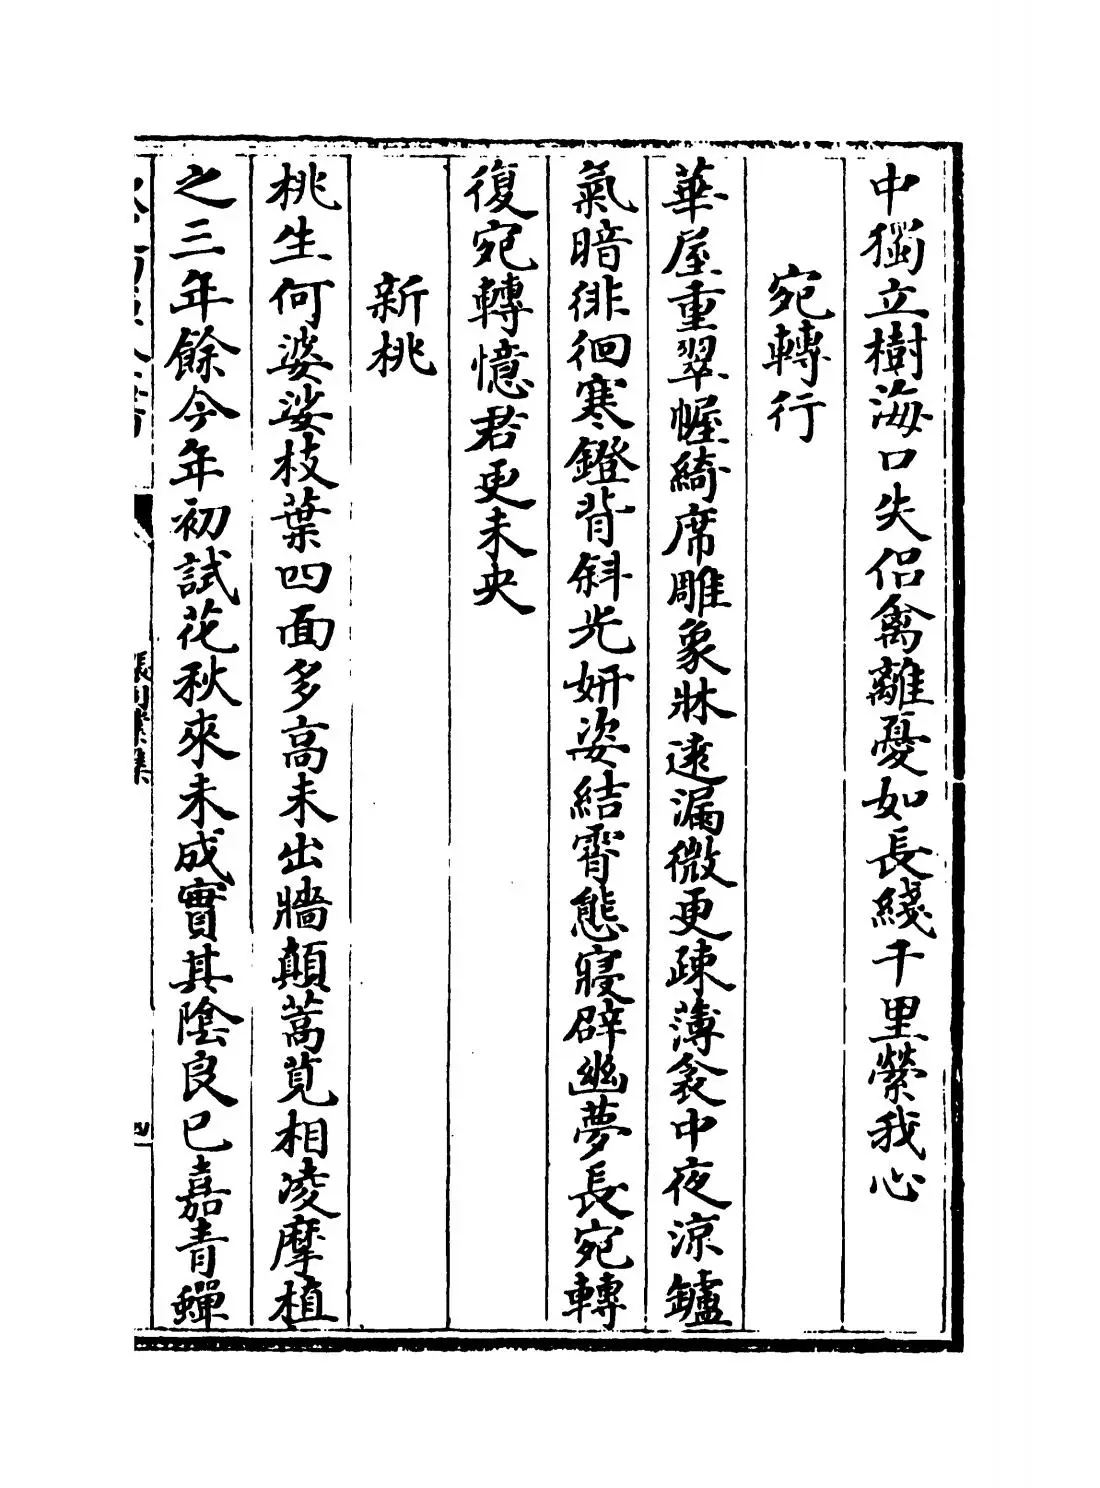 中獨立樹海口失侣禽離憂如長綫千里縈我心
宛轉行
華屋重翠幄綺席雕象牀逺漏微更疎薄衾中夜涼鑪
氣暗徘徊寒鐙背斜光妍姿結霄態寢辟幽夢長宛轉
復宛轉憶君更未央
新桃
桃生何婆娑枝葉四面多高未出牆顛蒿莧相凌摩植
之三年餘今年初試花秋來未成實其陰良已嘉青蟬
張司業集
四